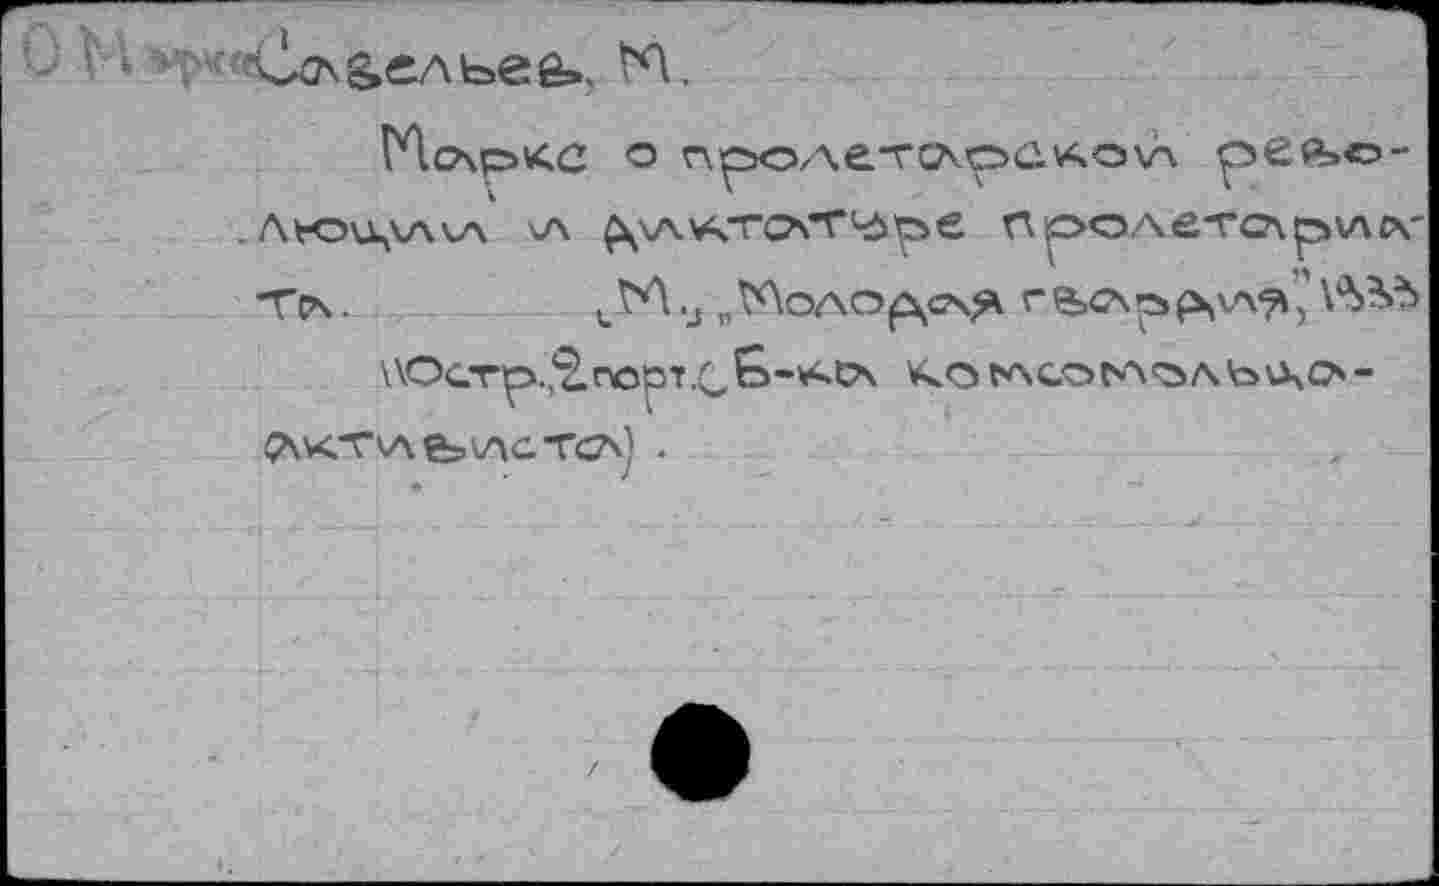 О Маркс Савельев, М.
Маркс о пролетарской рево-
люции и диктатуре пролетариа-
та. [М.], „Молодая гвардия", 1933
40стр., 2порт. (Б-ка комсомольца-
активиста) .